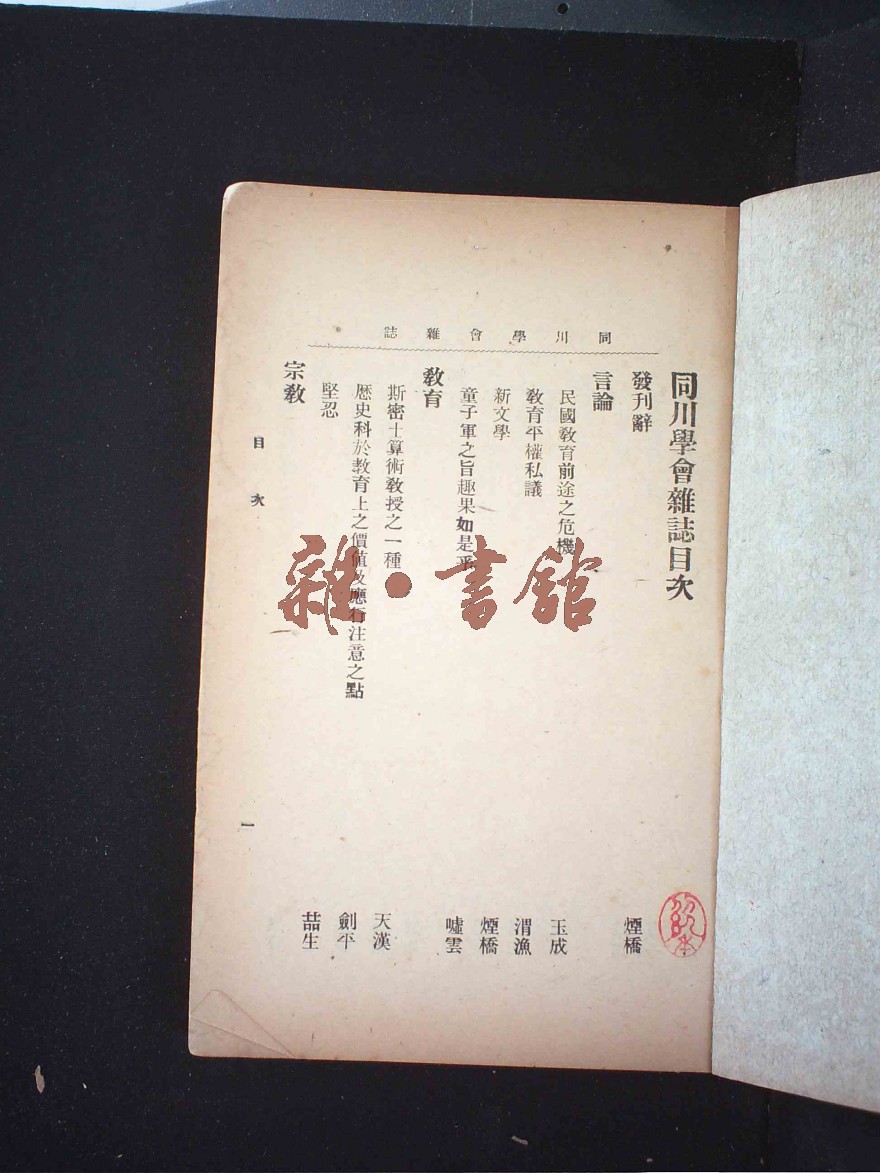 同川學會雜誌
同川學會雜誌目次
發刊辭 煙橋
言論
民國教育前途之危機 玉成
教育平權私議 渭漁
新文學 煙橋
童子軍之旨趣果如是乎 噓雲
教育
斯密士算術教授之一種 天漢
歷史科於教育上之價值及應行注意之點 劍平
堅忍 喆生
宗教
目次
一
雜·書館